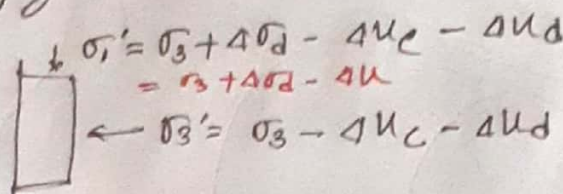 σ₁' = σ₃ + Δσd - Δuc - Δud
= σ₃ + Δσd - Δu
← σ₃' = σ₃ - Δuc - Δud